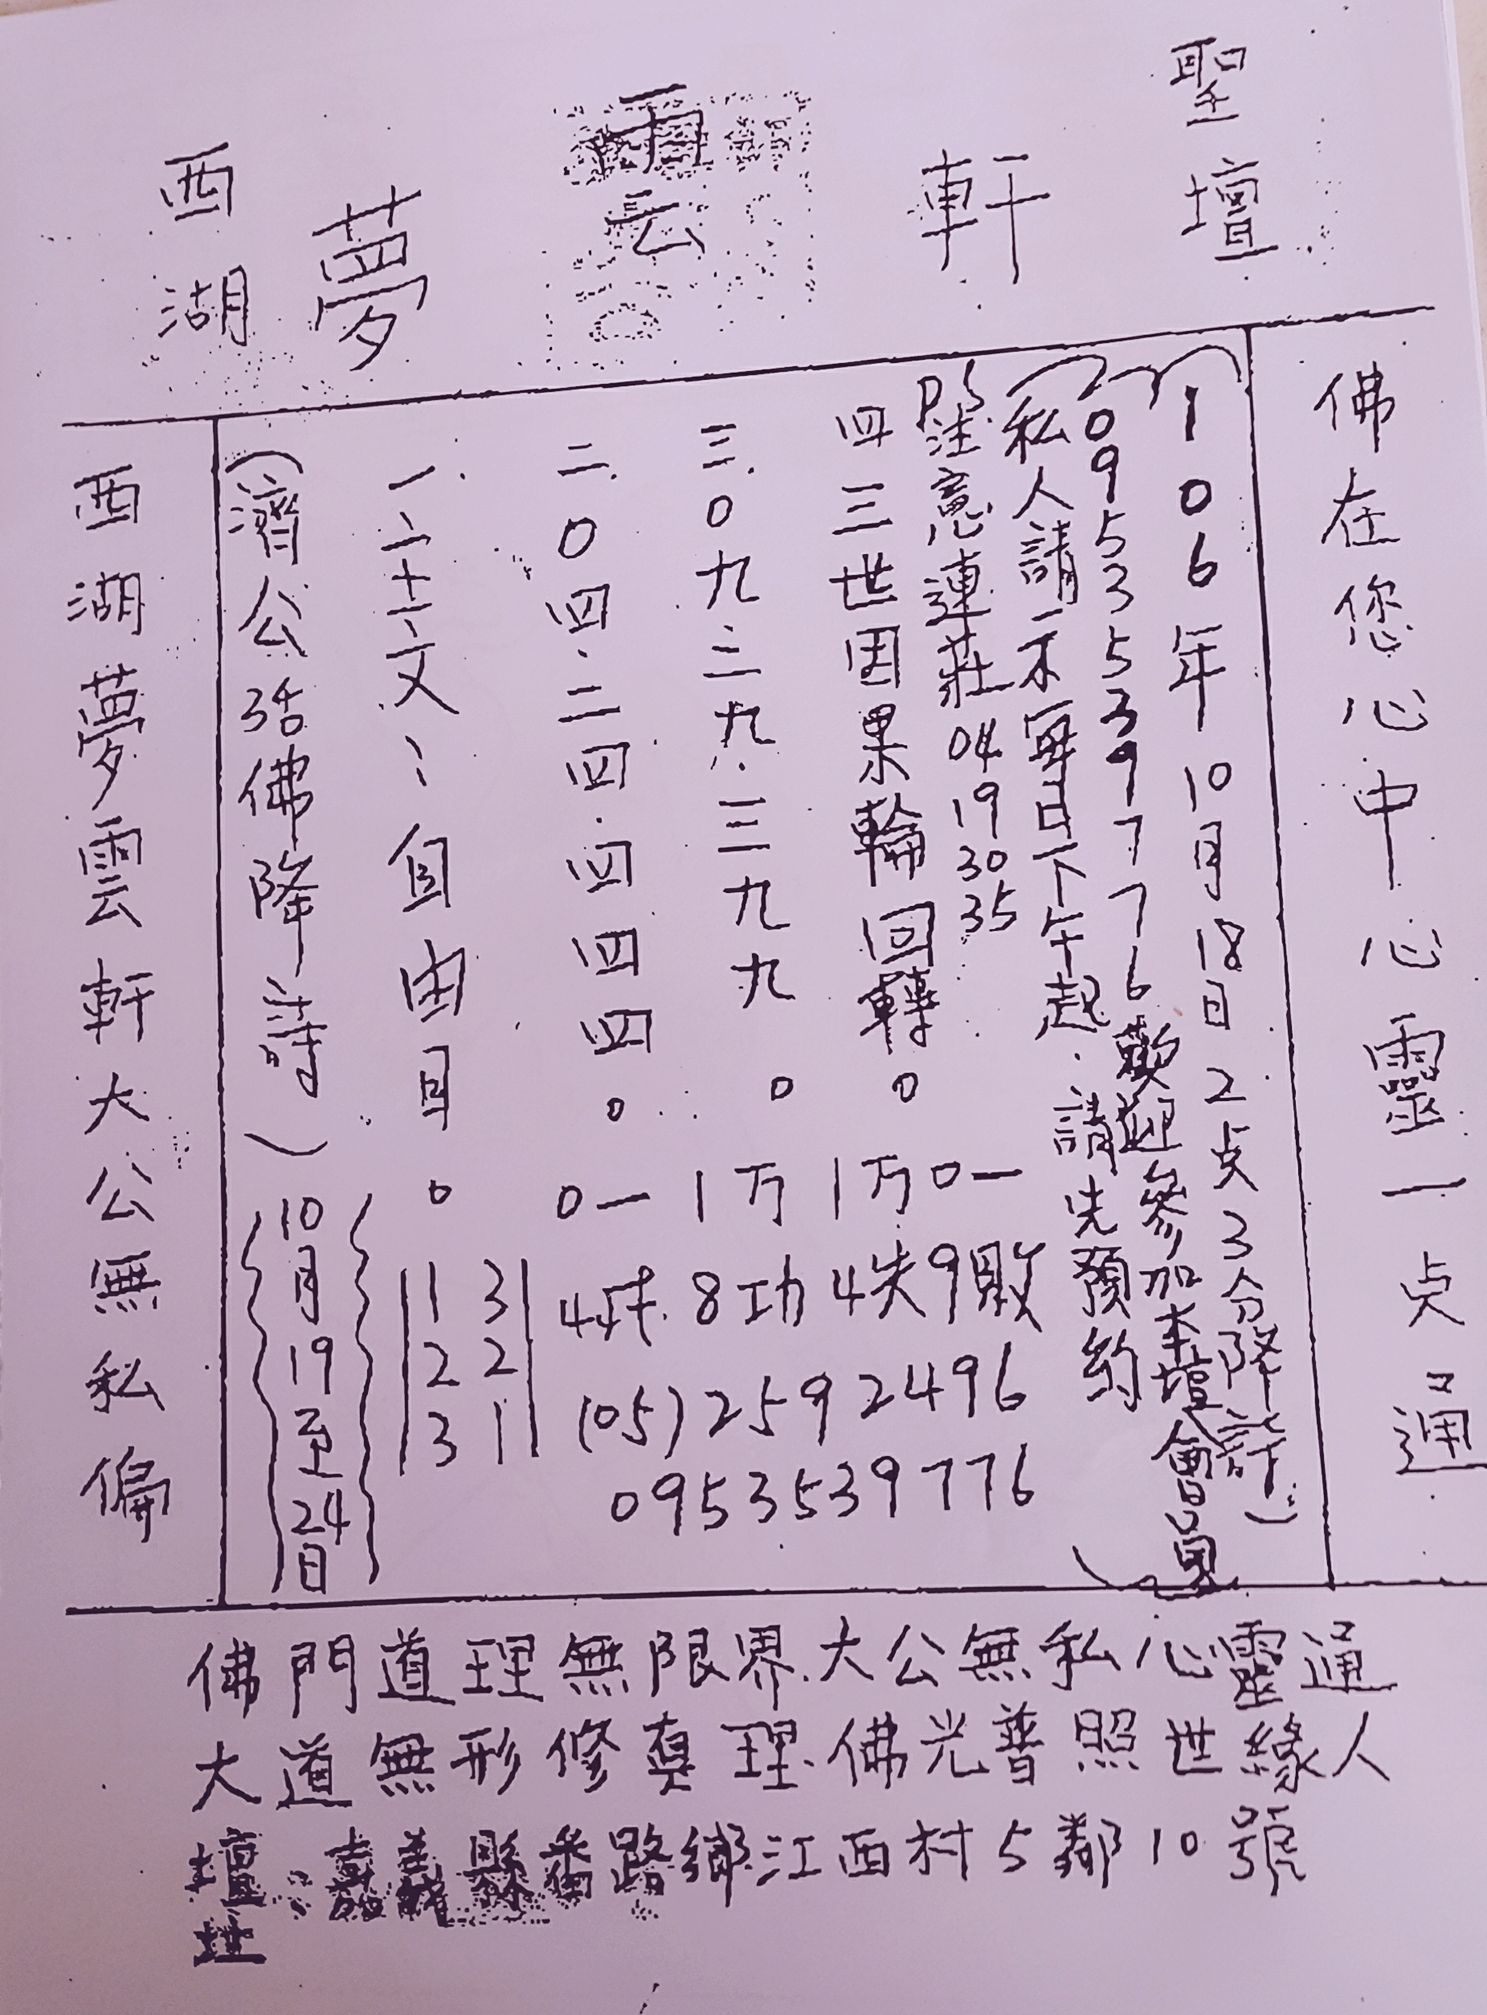 西湖 夢雲軒 聖壇
佛在您心中心靈一点通
(106年10月18日2点3分降詩)
(0953539776歡迎參加本壇會員)
私人請示每日下午起.請先預約
PS注意連莊04 19 30 35
四三世因果輪回轉。
三.0九二九.三九九。
二.0四.二四.四四四。
一.二十一文、自由自。
(濟公活佛降詩)
10月19至24日
123
321
0一 1万 1万 0一
4成 8功 4失 9敗
(05)2592496
0953539776
西湖夢雲軒大公無私偏
佛門道理無限界.大公無私心靈通
大道無形修真理.佛光普照世緣人
壇址:嘉義縣番路鄉江西村5鄰10號